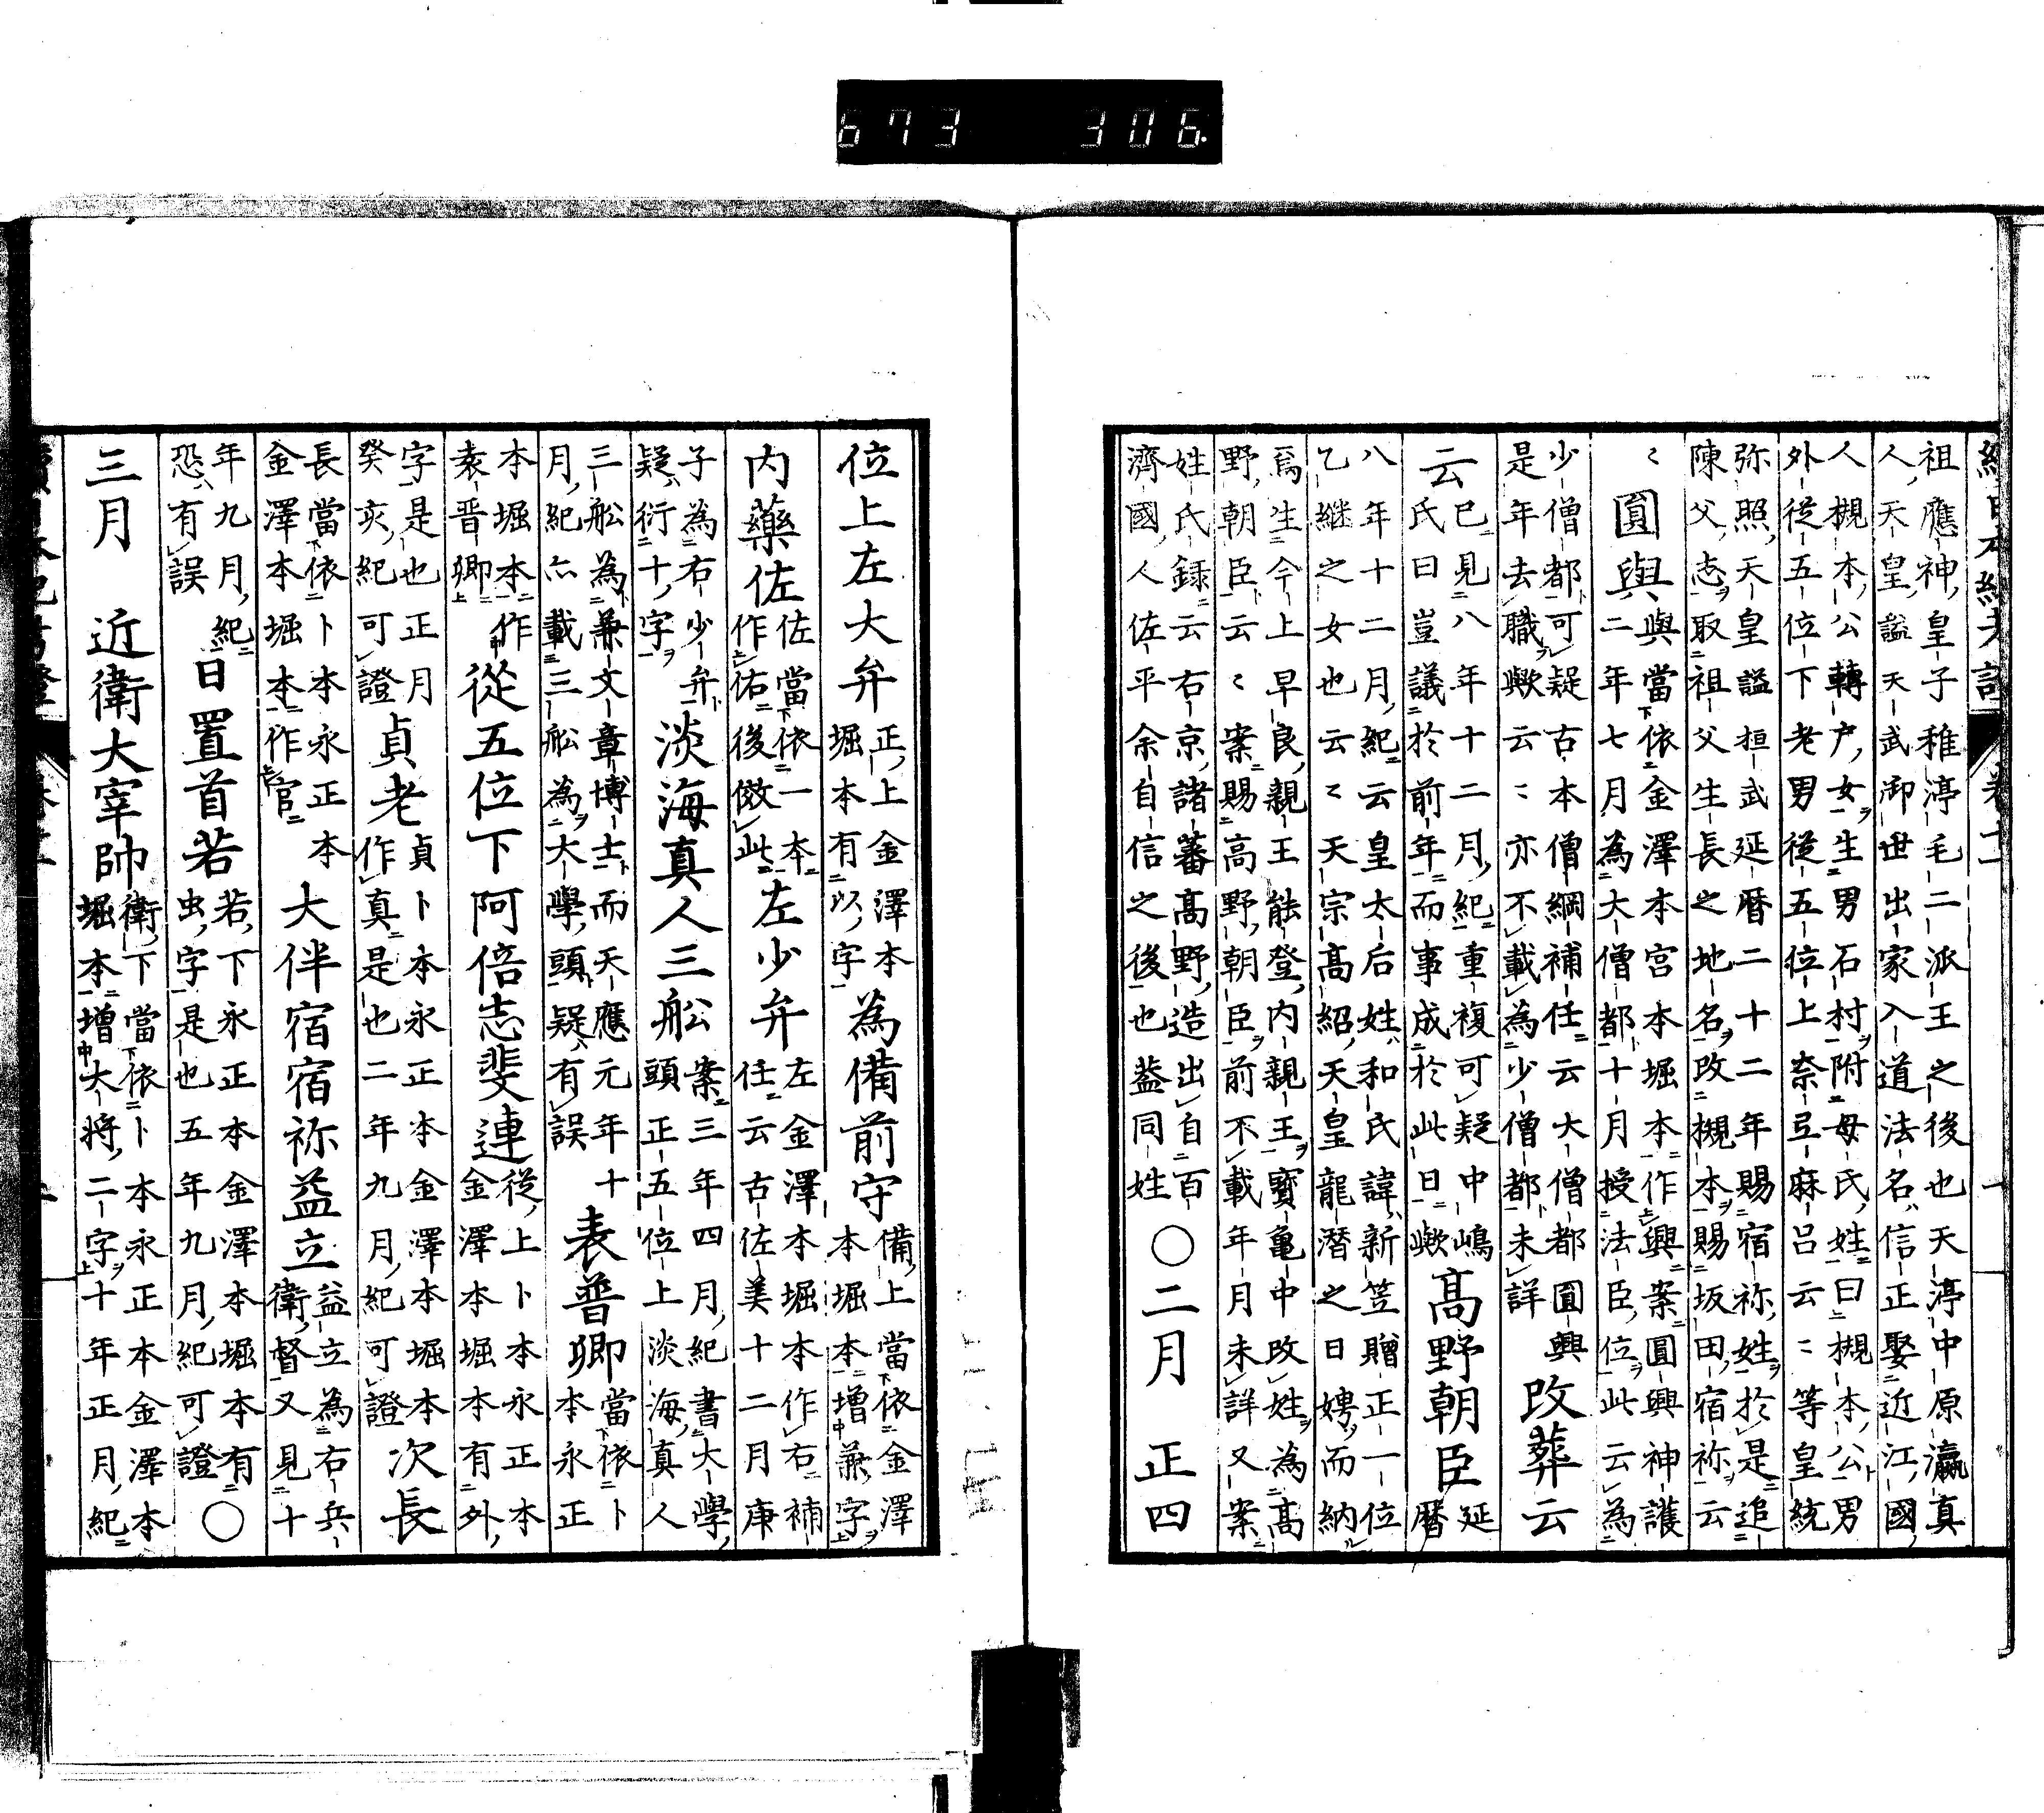 673 306.
祖應神皇子稚渟毛二派王之後也天渟中原瀛真
人天皇謚天武御世出家入道法名信正娶近江國
人槻本公轉戸女生男石村附母氏姓曰槻本公男
外從五位下老男從五位上奈弖麻呂云〻等皇統
弥照天皇謚桓武延曆二十二年賜宿祢姓於是追
陳父志取祖父生長之地名改槻本賜坂田宿祢云
〻
圓與
與當依金澤本宮本堀本作興案圓興神護
二年七月為大僧都十月授法臣位此云為
少僧都可疑古本僧綱補任云大僧都圓興
是年去職歟云〻亦不載為少僧都未詳
改葬云
云
已見八年十二月紀重複可疑中嶋
氏曰豈議於前年而事成於此日歟
高野朝臣
延曆
八年十二月紀云皇太后姓和氏諱新笠贈正一位
乙継之女也云〻天宗高紹天皇龍潛之日娉而納
焉生今上早良親王能登内親王寶亀中改姓為高
野朝臣云〻案賜高野朝臣前不載年月未詳又案
姓氏録云右京諸蕃高野造出自百
濟國人佐平余自信之後也葢同姓
○二月
正四
位上左大弁
正上金澤本
堀本有以字
為備前守
備上當依金澤
本堀本增兼字
内藥佐
佐當依一本
作佑後倣此
左少弁
左金澤本堀本作右補
任云古佐美十二月庚
子為右少弁
疑衍十字
淡海真人三舩
案三年四月紀書大學
頭正五位上淡海真人
三舩為兼文章博士而天應元年十
月紀六載三舩為大學頭疑有誤
表普卿
當依卜
本永正
本堀本作
袁晋卿
從五位下阿倍志斐連
從上卜本永正本
金澤本堀本有外
字是也正月
癸亥紀可證
貞老
貞卜本永正本金澤本堀本
作真是也二年九月紀可證
次長
長當依卜本永正本
金澤本堀本作官
大伴宿宿祢益立
益立為右兵
衛督又見十
年九月紀
恐有誤
日置首若
若下永正本金澤本堀本有
虫字是也五年九月紀可證
○
三月
近衛大宰帥
衛下當依卜本永正本金澤本
堀本增大將二字十年正月紀